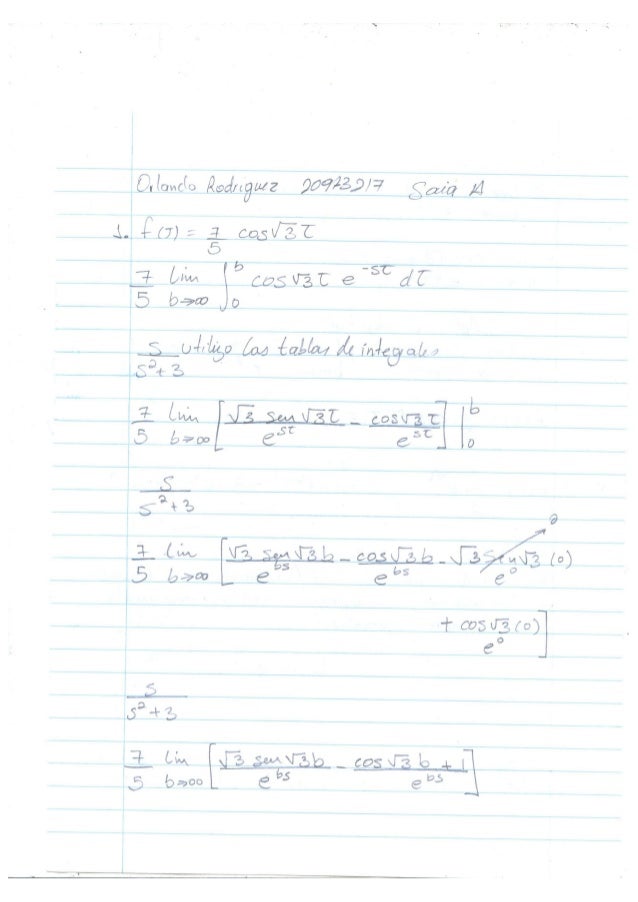 Orlando Rodriguez 20923217 Saia A
1. f(τ) = 7/5 cos√3 τ
7/5 lim b→∞ ∫₀ᵇ cos √3 τ e^-sτ dτ
s/s²+3 utilizo las tablas de integrales
7/5 lim b→∞ [√3 sen √3τ/e^sτ - cos√3 τ/e^sτ] |₀ᵇ
s/s²+3
7/5 lim b→∞ [√3 sen √3b/e^bs - cos√3b/e^bs - √3 sen√3 (0)/e⁰ 0
+ cos √3 (0)/e⁰]
s/s²+3
7/5 lim b→∞ [√3 sen √3b/e^bs - cos √3 b + 1/e^bs]